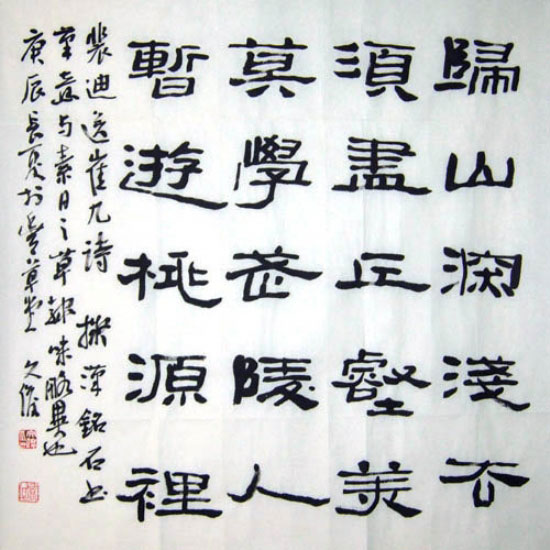 歸山深淺去
須盡丘壑美
莫學武陵人
暫遊桃源裡
裴迪送崔九詩 擬漢銘石書
與素日之草味略異也
庚辰長夏於草堂